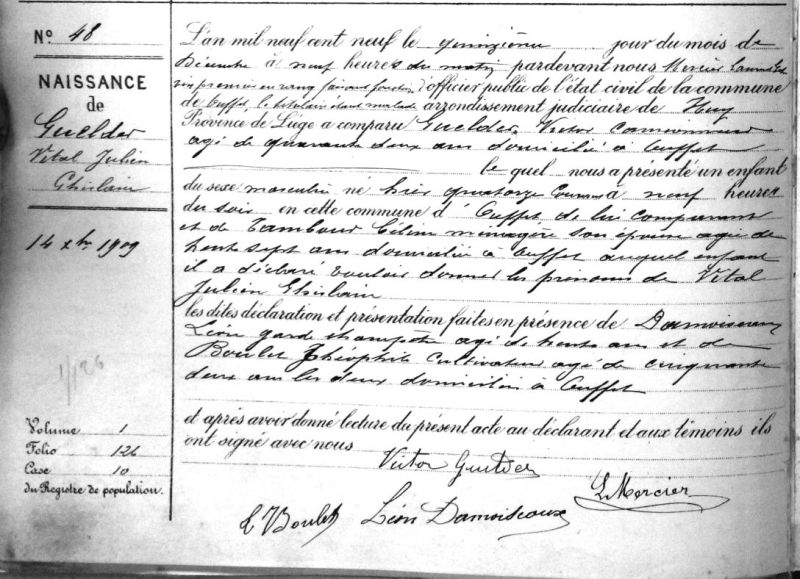 N° 48
NAISSANCE
de
Guelder
Vital Julien
Ghislain
14 xbre 1909
1/126
Volume 1
Folio 126
Case 10
du Registre de population.
L'an mil neuf cent neuf le quinzième jour du mois de
Décembre à neuf heures du matin pardevant nous Mercier
officier public de l'état civil de la commune
de Ouffet, le titulaire étant malade arrondissement judiciaire de Huy
Province de Liége a comparu Guelder Victor
agé de quarante deux ans domicilié à Ouffet
le quel nous a présenté un enfant
du sexe masculin né hier quatorze courant à neuf heures
du soir en cette commune d'Ouffet de lui comparant
et de Tambour Céline ménagère son épouse agée de
trente sept ans domiciliée à Ouffet auquel enfant
il a déclaré vouloir donner les prénoms de Vital
Julien Ghislain
les dites déclaration et présentation faites en présence de Damoiseaux
Léon garde champêtre agé de trente ans et de
Boulet Théophile cultivateur agé de cinquante
deux ans les deux domiciliés à Ouffet
et après avoir donné lecture du présent acte au déclarant et aux témoins ils
ont signé avec nous
Victor Guelder
L Mercier
Boulet Léon Damoiseaux